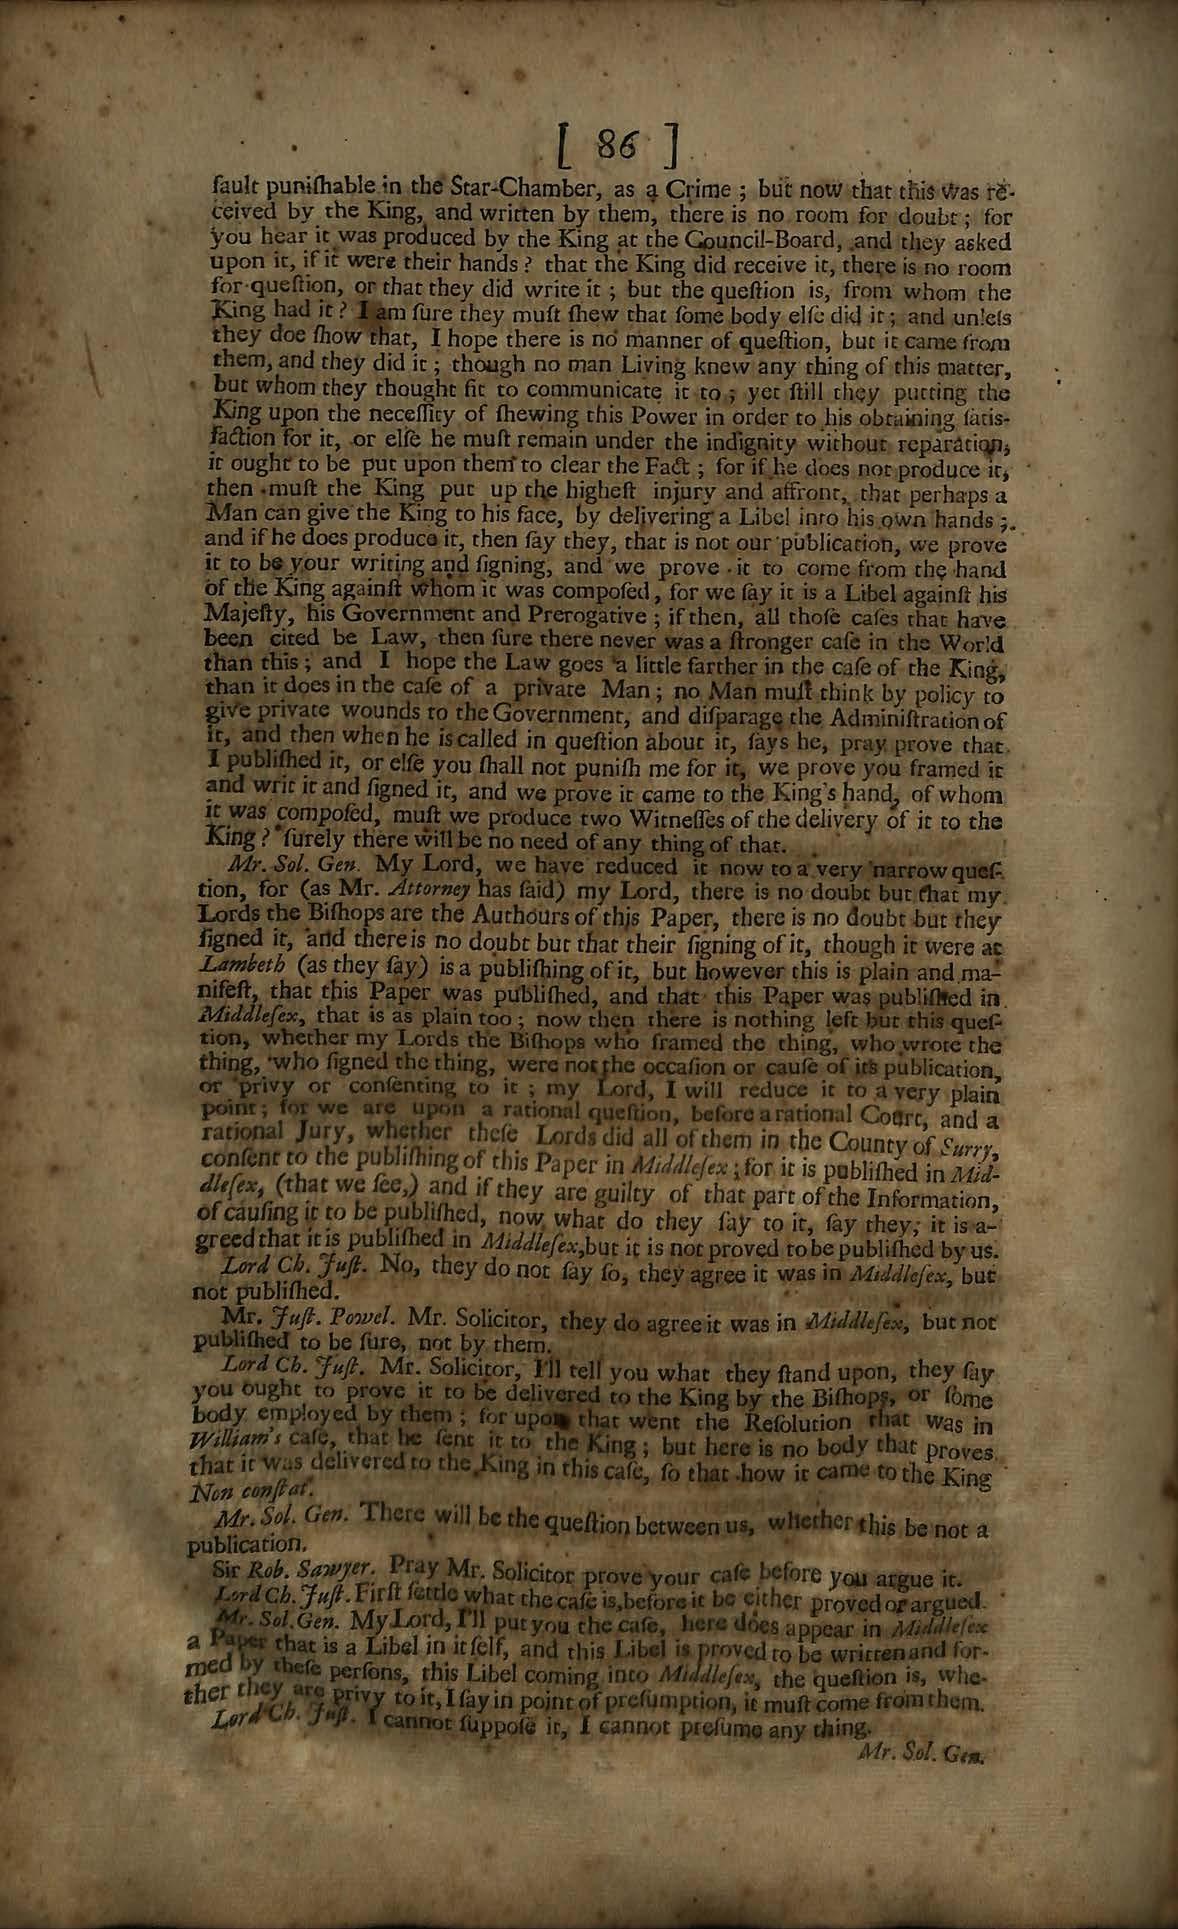 [ 86 ]
ſault puniſhable in the Star-Chamber, as a Crime ; but now that this was re-
ceived by the King, and written by them, there is no room for doubt ; for
you hear it was produced by the King at the Council-Board, and they asked
upon it, if it were their hands ? that the King did receive it, there is no room
for queſtion, or that they did write it ; but the queſtion is, from whom the
King had it ? I am ſure they muſt ſhew that ſome body elſe did it ; and unleſs
they doe ſhow that, I hope there is no manner of queſtion, but it came from
them, and they did it ; though no man Living knew any thing of this matter,
but whom they thought fit to communicate it to ; yet ſtill they putting the
King upon the neceſſity of ſhewing this Power in order to his obtaining ſatis-
faction for it, or elſe he muſt remain under the indignity without reparation,
it ought to be put upon them to clear the Fact ; for if he does not produce it,
then muſt the King put up the higheſt injury and affront, that perhaps a
Man can give the King to his face, by delivering a Libel into his own hands ;
and if he does produce it, then ſay they, that is not our publication, we prove
it to be your writing and ſigning, and we prove it to come from the hand
of the King againſt whom it was compoſed, for we ſay it is a Libel againſt his
Majeſty, his Government and Prerogative ; if then, all thoſe caſes that have
been cited be Law, then ſure there never was a ſtronger caſe in the World
than this ; and I hope the Law goes a little farther in the caſe of the King,
than it does in the caſe of a private Man ; no Man muſt think by policy to
give private wounds to the Government, and diſparage the Adminiſtration of
it, and then when he is called in queſtion about it, ſays he, pray prove that
I publiſhed it, or elſe you ſhall not puniſh me for it, we prove you framed it
and writ it and ſigned it, and we prove it came to the King's hand, of whom
it was compoſed, muſt we produce two Witneſſes of the delivery of it to the
King ? ſurely there will be no need of any thing of that.
Mr. Sol. Gen. My Lord, we have reduced it now to a very narrow queſ-
tion, for (as Mr. Attorney has ſaid) my Lord, there is no doubt but that my
Lords the Biſhops are the Authours of this Paper, there is no doubt but they
ſigned it, and there is no doubt but that their ſigning of it, though it were at
Lambeth (as they ſay) is a publiſhing of it, but however this is plain and ma-
nifeſt, that this Paper was publiſhed, and that this Paper was publiſhed in
Middleſex, that is as plain too ; now then there is nothing left but this queſ-
tion, whether my Lords the Biſhops who framed the thing, who wrote the
thing, who ſigned the thing, were not the occaſion or cauſe of its publication,
or privy or conſenting to it ; my Lord, I will reduce it to a very plain
point ; for we are upon a rational queſtion, before a rational Court, and a
rational Jury, whether theſe Lords did all of them in the County of Surry,
conſent to the publiſhing of this Paper in Middleſex ; for it is publiſhed in Mid-
dleſex, (that we ſee,) and if they are guilty of that part of the Information,
of cauſing it to be publiſhed, now what do they ſay to it, ſay they, it is a-
greed that it is publiſhed in Middleſex, but it is not proved to be publiſhed by us.
Lord Ch. Juſt. No, they do not ſay ſo, they agree it was in Middleſex, but
not publiſhed.
Mr. Juſt. Powel. Mr. Solicitor, they do agree it was in Middleſex, but not
publiſhed to be ſure, not by them.
Lord Ch. Juſt. Mr. Solicitor, I'll tell you what they ſtand upon, they ſay
you ought to prove it to be delivered to the King by the Biſhops, or ſome
body employed by them ; for upon that went the Reſolution that was in
William's caſe, that he ſent it to the King ; but here is no body that proves
that it was delivered to the King in this caſe, ſo that how it came to the King
Non conſtat.
Mr. Sol. Gen. There will be the queſtion between us, whether this be not a
publication.
Sir Rob. Sawyer. Pray Mr. Solicitor prove your caſe before you argue it.
Lord Ch. Juſt. Firſt ſettle what the caſe is, before it be either proved or argued.
Mr. Sol. Gen. My Lord, I'll put you the caſe, here does appear in Middleſex
a Paper that is a Libel in it ſelf, and this Libel is proved to be written and for-
med by theſe perſons, this Libel coming into Middleſex, the queſtion is, whe-
ther they are privy to it, I ſay in point of preſumption, it muſt come from them.
Lord Ch. Juſt. I cannot ſuppoſe it, I cannot preſume any thing.
Mr. Sol. Gen.